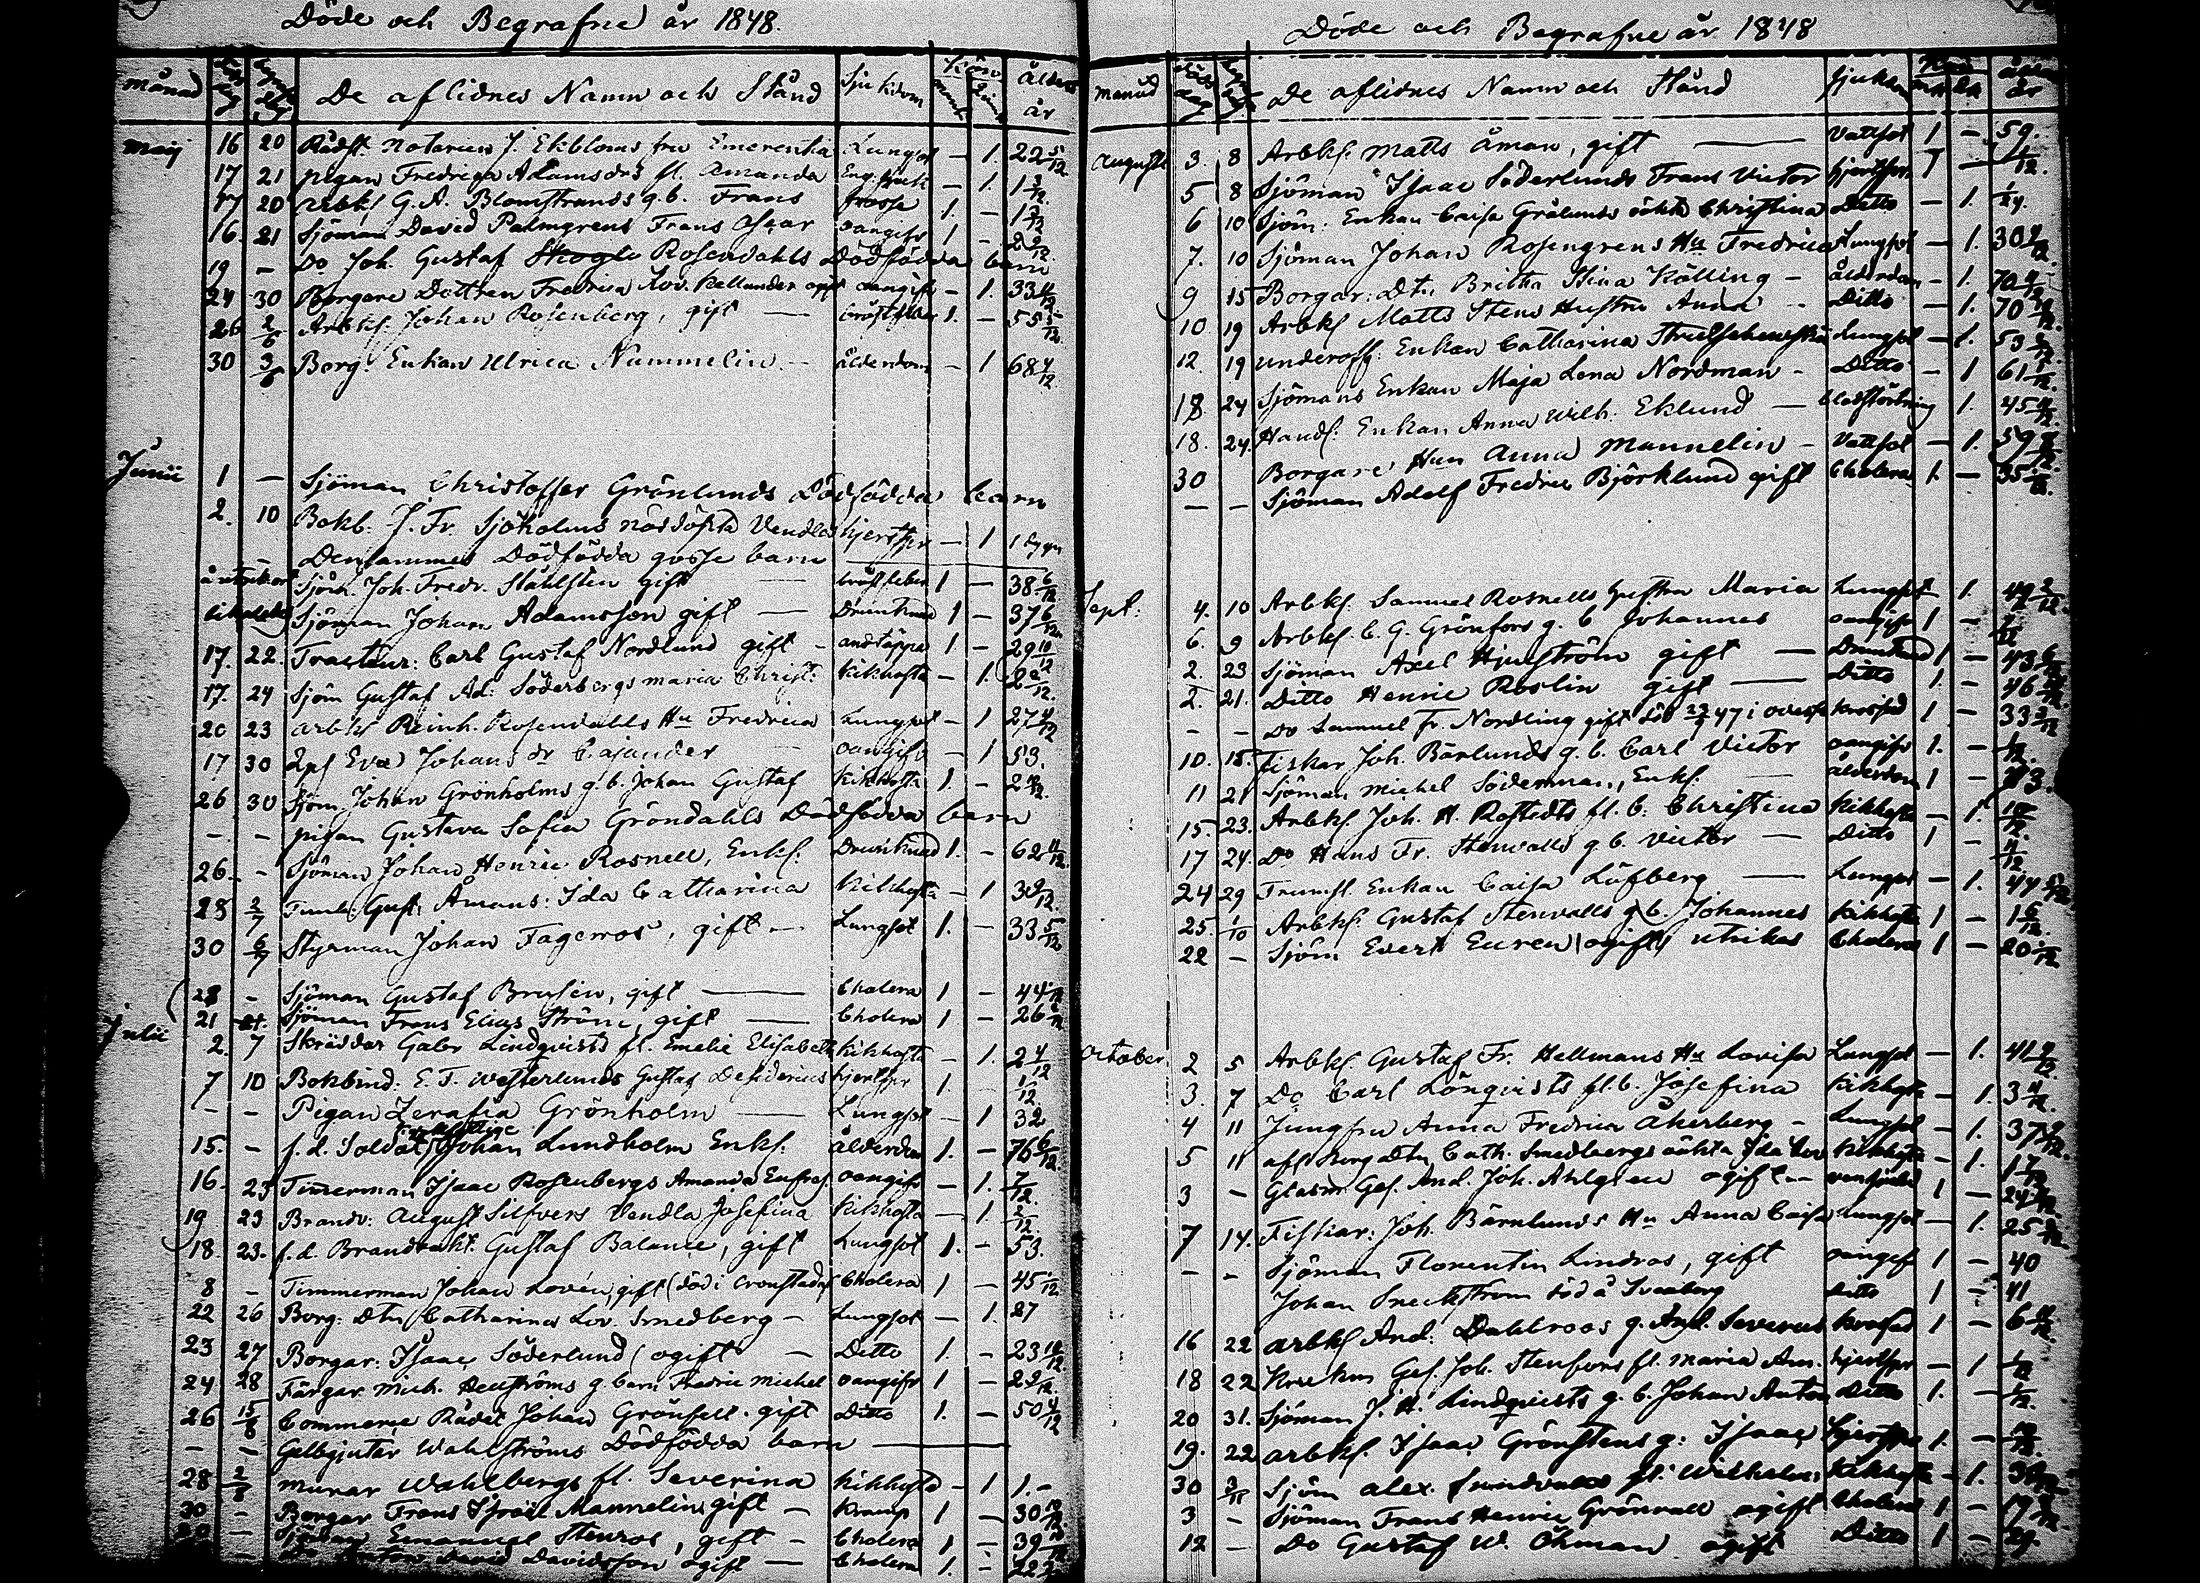 Döde och Begrafne år 1848.
månad De aflidnes Namn och Stånd Sjukdom Kön ålder år
Maij 16 20 Rådst. Notarien J. Ekbloms fru Emerentia Lungsot – 1. 22 5/12
17 21 pigan Fredrica Adamsdrs fl. Amanda Eng. sjuk – 1. 1
17 20 Arbkl G. A. Blomstrands g. b. Frans frossa 1. – 1
16. 21 Sjöman David Palmgrens Frans Oscar oangifv 1 –
19 – Do Joh. Gustaf Rosendahls Dödfödda barn
24 30 Borgare Dottren Fredrica Lov. Kellander ogift oangifv – 1. 33
26 2/6 Arbkl. Johan Rosenberg, gift bröstfeber 1. – 55
30 3/6 Borg. Enkan Ulrica Nummelin – ålderdom – 1 68 4/12
Junii 1 – Sjöman Christoffer Grönlunds Dödfödda barn
2. 10 Bokb. J. Fr. Sjöholms nöddöpta Vendla hjertspr – 1 1 dygn
– Densammes Dödfödda gosse barn
Sjöm. Joh. Fredr. Ståhlsten gift bröstfeber 1 – 38 6/12
Sjöman Johan Adamsson gift Drunknad 1 – 37 6/12
17. 22. Tracteur: Carl Gustaf Nordlund gift – andtäppa 1 – 29 10/12
17. 24 Sjöm Gustaf Ad: Söderbergs Maria Christ: Kikhosta – 1. 2
20 23 Arbkl Reinh. Rosendalls Hu Fredrica Lungsot – 1 27
17 30 Eva Johansdr Cajander oangifv – 1 53.
26 30 Sjöm Johan Grönholms g. b. Johan Gustaf Kikhosta 1 – 2
– – pigan Gustava Sofia Gröndahls Dödfödda barn
26. – Sjöman Johan Henric Rosnell, Enkl. Drunknad 1. – 62 11/12
28 2/7 Timb: Gust: Åmans: Ida Catharina Kikhosta – 1 3
30 6/7 Styrman Johan Fagerros, gift – Lungsot 1. – 33 5/12
28 – Sjöman Gustaf Brusin, gift Cholera 1 – 44
Julii 21 Sjöman Frans Elias Ström, gift Cholera 1 – 26
2. 7 Skräddar Gabr Lindqvists fl. Emelie Elisabeth Kikhosta – 1. 2 4/12
7 10 Bokbind: E. T. Westerlunds Gustaf Desiderius hjertspr 1. – 1/12
– – Pigan Serafia Grönholm Lungsot – 1 32
15. – f. d. Soldat Johan Lundholm Enkl. ålderdom 1. – 76 6/12
16. 23 Timerman Isaac Rosenbergs Amanda Eufros. oangifv – 1. 7/12
19 23 Brandv: August Silfvers Vendla Josefina Kikhosta – 1. 2/12
18. 23. f. d. Brandvakt. Gustaf Balance, gift Lungsot 1. – 53.
8 – Timmerman Johan Lovén, gift (död i Cronstadt) Cholera 1 – 45
22 26 Borg: Dtn Catharina Lov. Smedberg – Lungsot – 1. 27
23 27 Borgar: Isaac Söderlund ogift – Ditto 1. – 23 10/12
24 28 Färgar Mich. Hellströms g. barn Fredric Michel oangifv 1 – 2
26 15/8 Commerce Rådet Johan Grönfelt. gift Ditto 1. – 50 4/12
– – Gelbgjutar Wahlströms Dödfödda barn
28 2/8 murar Wahlbergs fl. Severina Kikhosta – 1 1. –
30 – Borgar Frans Israel Mannelin gift – Kramp 1 – 30
20 – Sjöman Emanuel Stenros, gift – Cholera 1 – 39
Anton David Davidsson ogift Cholera 1. – 22
Döde och Begrafne år 1848
månad De aflidnes Namn och Stånd sjukdom ålder år
Augusti 3. 8 Arbkl. Matts Åman, gift Vattsot 1 – 59.
5 8 Sjöman Isaac Söderlunds Frans Victor hjertspr 1 –
6 10 Sjöm: Enkan Caisa Grölunds oäkta Christina Ditto – 1.
7. 10 Sjöman Johan Rosengrens Hu Fredrica Lungsot – 1. 30
9 15 Borgar: Dtr. Britha Stina Kölling – ålderdom – 1. 70
10 19 Arbkl Matts Stens Hustru Anna – Ditto – 1. 70
12 19 underoff: Enkan Catharina Lungsot – 1. 53
18. 24 Sjömans Enkan Maja Lena Nordman – Ditto – 1 61
18. 24. Handl: Enkan Anna Wilh: Eklund – blodstörtning 1. 45
30 Borgare Hun Anna Mannelin – Vattsot – 1. 59
– – Sjöman Adolf Fredric Björklund gift Cholera 1. – 35
Sept: 4. 10 Arbkl. Samuel Rosnells Hustru Maria Lungsot – 1. 49 2/12
6. 9 Arbkl C. G. Grönfors g. b Johannes oangifv 1 –
2. 23 Sjöman Axel Hjulström gift – Drunknad 1 – 43
2. 21. Ditto Henric Roslin gift Ditto 1. – 46
– – Do Samuel Fr. Nordling gift död 47 i krossad 1 – 33
10. 15. Fiskar Joh. Bärlunds g. b. Carl Victor oangifv 1. –
11 21 Sjöman Michel Söderman, Enkl. ålderdom 1 – 73.
15. 23. Arbkl. Joh. H. Rostedts fl. b. Christina Kikhosta – 1. 10/12
17 24. Do Hans Fr. Stenvalls g b. Victor – Ditto 1 – 11/12
24 29 Trumsl. Enkan Caisa Löfberg Lungsot – 1. 44
25. 1/10 Arbkl. Gustaf Stenvalls g. b. Johannes Kikhosta 1 – 1 6/12
22 – Sjöm Evert Euren (ogift) utrikes Cholera 1 – 20
October 2 5 Arbkl. Gustaf Fr. Hellmans Hu Lovisa Lungsot – 1. 41
3. 7 Do Carl Lönqvists fl. b. Josefina Kikhosta – 1. 3
4 11 Jungfru Anna Fredrica Åkerberg – Lungsot – 1. 37
5 11 afl Borg Dtn Cath. Smedbergs oäkta Ida Lov Kikhosta – 1. 1
3 – Glasm. Ges. And. Joh. Ahlgren ogift – 1 – 24
7 14. Fiskar: Joh. Bärnlunds Hu Anna Caisa Lungsot – 1. 25
– – Sjöman Florentin Lindros, gift oangift 1 – 40
Johan Sneckström död å Sveaborg Ditto 1 – 41
16 22 arbkl And: Dahlroos g. And. Severus Krossad 1 – 6
18 22 Ges. Joh. Stenfors fl. Maria Am. hjertspr – 1
20 31. Sjöman J. H. Lindqvists g. b. Johan Anton Ditto 1. – 1/12
19. 22 arbkl. Isaac Grönstens g: Isaac hjertspr 1. –
30 3/11 Sjöm Alex. Sundvalls fl. Wilhelm: Kikhosta – 1. 3
3 – Sjöman Frans Henric Grönvall ogift Cholera 1 – 19
12 – Do Gustaf W. Öhman ogift Ditto 1 – 29.